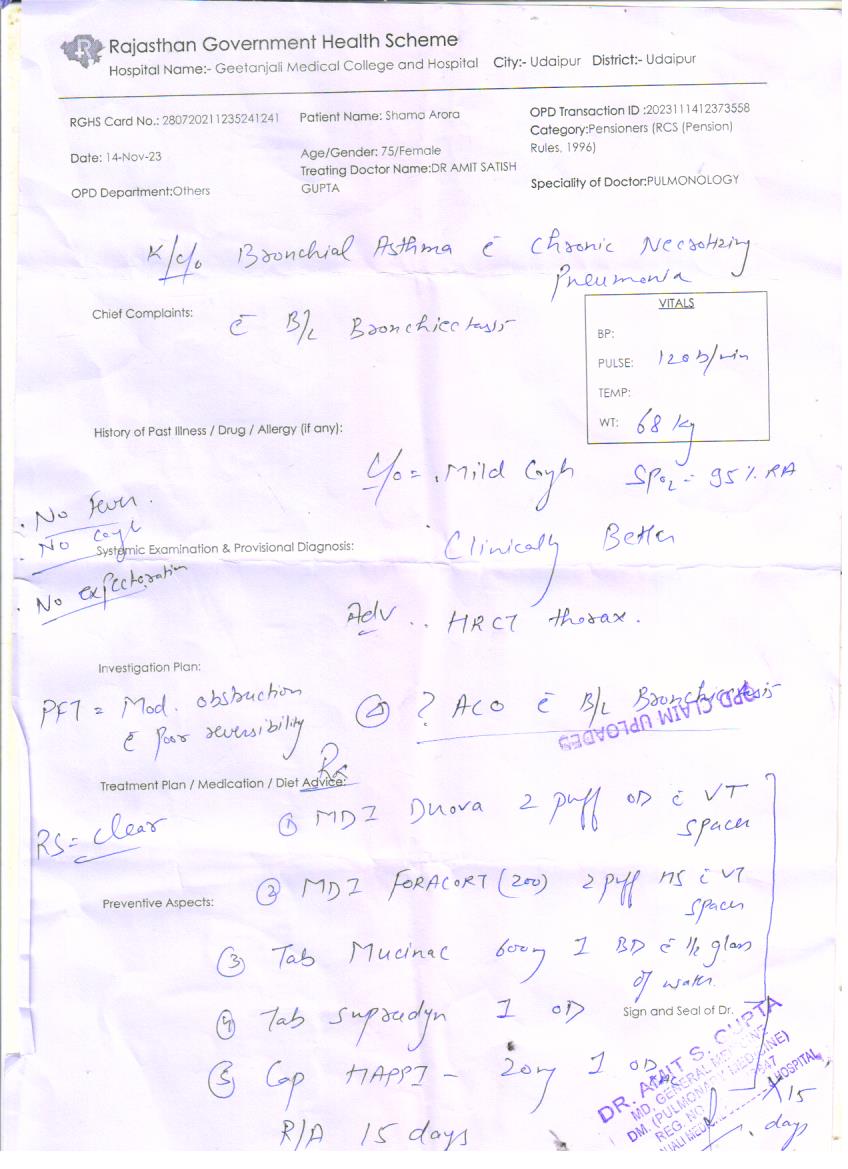 Rajasthan Government Health Scheme
Hospital Name:- Geetanjali Medical College and Hospital City:- Udaipur District:- Udaipur
RGHS Card No.: 280720211235241241
Patient Name: Shama Arora
OPD Transaction ID :2023111412373558
Category:Pensioners (RCS (Pension)
Rules, 1996)
Date: 14-Nov-23
Age/Gender: 75/Female
Treating Doctor Name:DR AMIT SATISH
GUPTA
OPD Department:Others
Speciality of Doctor:PULMONOLOGY
K/c/o Bronchial Asthma c̄ Chronic Necrotizing
Pneumonia
Chief Complaints:
c̄ B/L Bronchiectasis
VITALS
BP:
PULSE: 120 b/min
TEMP:
WT: 68 kg
History of Past Illness / Drug / Allergy (if any):
C/o = . Mild Cough
SpO2 = 95% RA
. No Fever.
. No Cough
Systemic Examination & Provisional Diagnosis:
Clinically Better
. No expectoration
Adv .. HRCT thorax.
Investigation Plan:
PFT = Mod. obstruction
c̄ Poor reversibility
Δ ? ACO c̄ B/L Bronchiectasis
OPD CLAIM UPLOADED
Rx
Treatment Plan / Medication / Diet Advice:
RS = Clear
① MDI Duova 2 puff OD c̄ VT
spacer
② MDI FORACORT (200) 2 puff HS c̄ VT
spacer
Preventive Aspects:
③ Tab Mucinac 600mg 1 BD c̄ 1/2 glass
of water.
④ Tab Supradyn 1 OD
Sign and Seal of Dr.
⑤ Cap HAPPI - 20mg 1 OD AC
x 15
days
DR. AMIT S. GUPTA
MD. GENERAL MEDICINE
DM. (PULMONARY MEDICINE)
REG. NO.
HOSPITAL
R/A 15 days